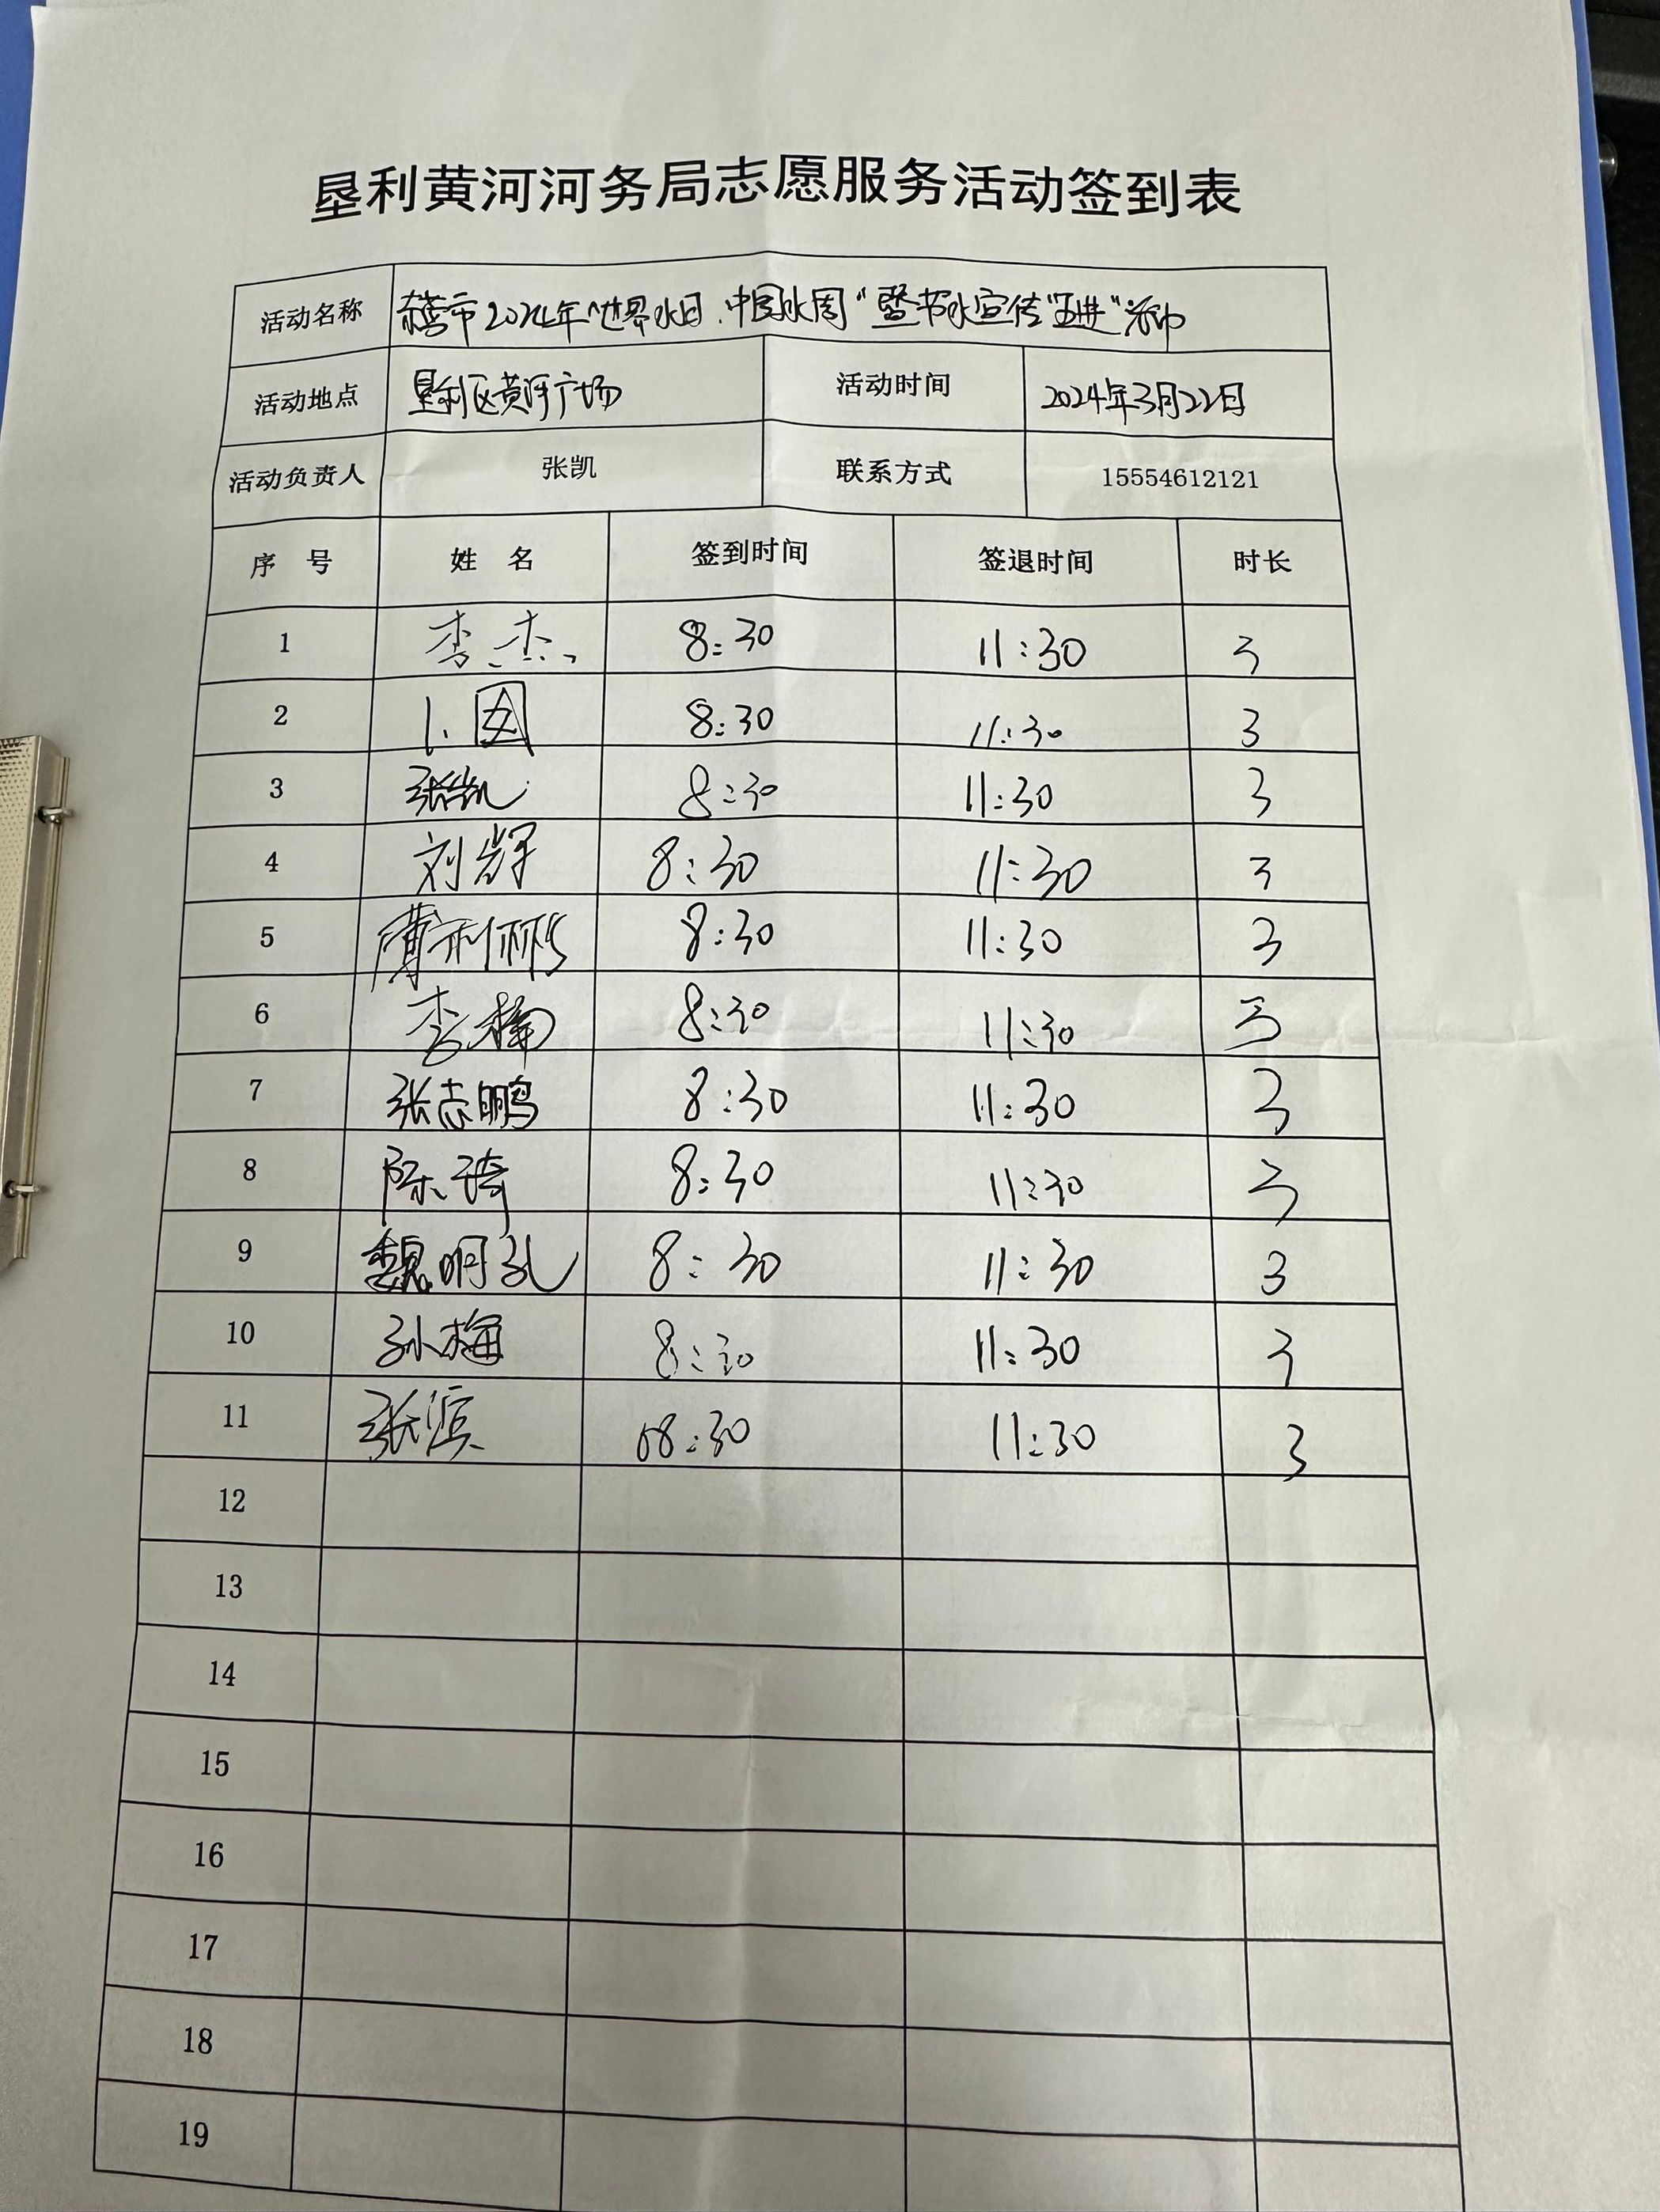 垦利黄河河务局志愿服务活动签到表
活动名称 东营市2024年"世界水日、中国水周"暨节水宣传"五进"活动
活动地点 垦利区黄河广场 活动时间 2024年3月22日
活动负责人 张凯 联系方式 15554612121
序 号 姓 名 签到时间 签退时间 时长
1 李杰 8:30 11:30 3
2 8:30 11:30 3
3 张凯 8:30 11:30 3
4 刘辉 8:30 11:30 3
5 8:30 11:30 3
6 李楠 8:30 11:30 3
7 张志鹏 8:30 11:30 3
8 陈琦 8:30 11:30 3
9 魏明孔 8:30 11:30 3
10 孙梅 8:30 11:30 3
11 张滨 08:30 11:30 3
12
13
14
15
16
17
18
19